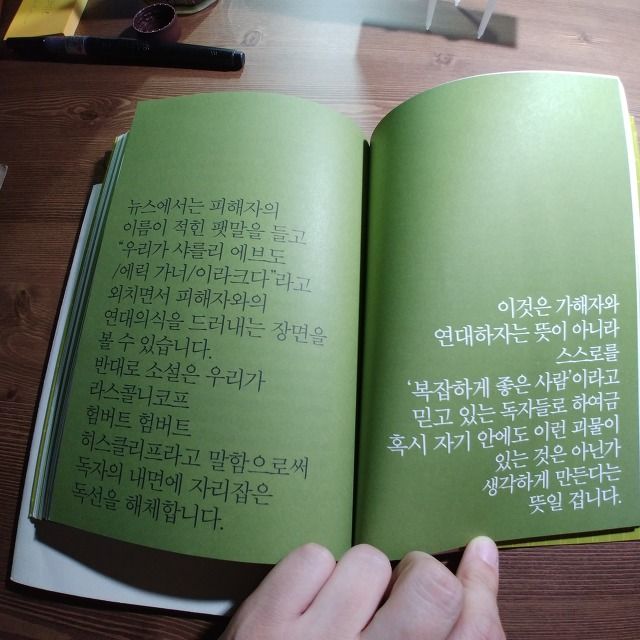 뉴스에서는 피해자의
이름이 적힌 팻말을 들고
“우리가 샤를리 에브도
/에릭 가너/이라크다”라고
외치면서 피해자와의
연대의식을 드러내는 장면을
볼 수 있습니다.
반대로 소설은 우리가
라스콜니코프
험버트 험버트
히스클리프라고 말함으로써
독자의 내면에 자리잡은
독선을 해체합니다.
이것은 가해자와
연대하자는 뜻이 아니라
스스로를
‘복잡하게 좋은 사람’이라고
믿고 있는 독자들로 하여금
혹시 자기 안에도 이런 괴물이
있는 것은 아닌가
생각하게 만든다는
뜻일 겁니다.